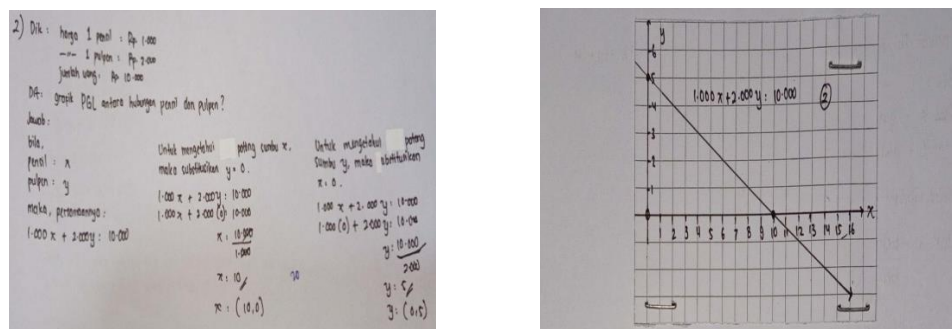 2) Dik : harga 1 pensil : Rp 1.000
--- 1 pulpen : Rp 2.000
Jumlah uang : Rp 10.000
Dit : grafik PGL antara hubungan pensil dan pulpen?
Jawab :
bila,
pensil : x
pulpen : y
maka, persamaannya :
1.000 x + 2.000y : 10.000
Untuk mengetahui potong sumbu x,
maka substitusikan y = 0.
1.000 x + 2.000y : 10.000
1.000 x + 2.000 (0) : 10.000
x : 10.000
1.000
x : 10
x : (10,0)
20
Untuk mengetahui potong
sumbu y, maka substitusikan
x = 0.
1.000 x + 2.000 y : 10.000
1.000 (0) + 2.000y : 10.000
y : 10.000
2.000
y : 5
y : (0,5)
y
6
5
4
3
2
1
1.000 x + 2.000 y : 10.000 2
0 1 2 3 4 5 6 7 8 9 10 11 12 13 14 15 16 x